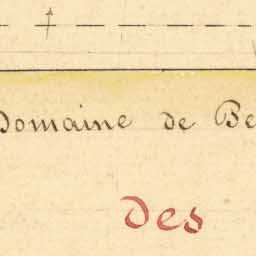 Domaine de Be
des